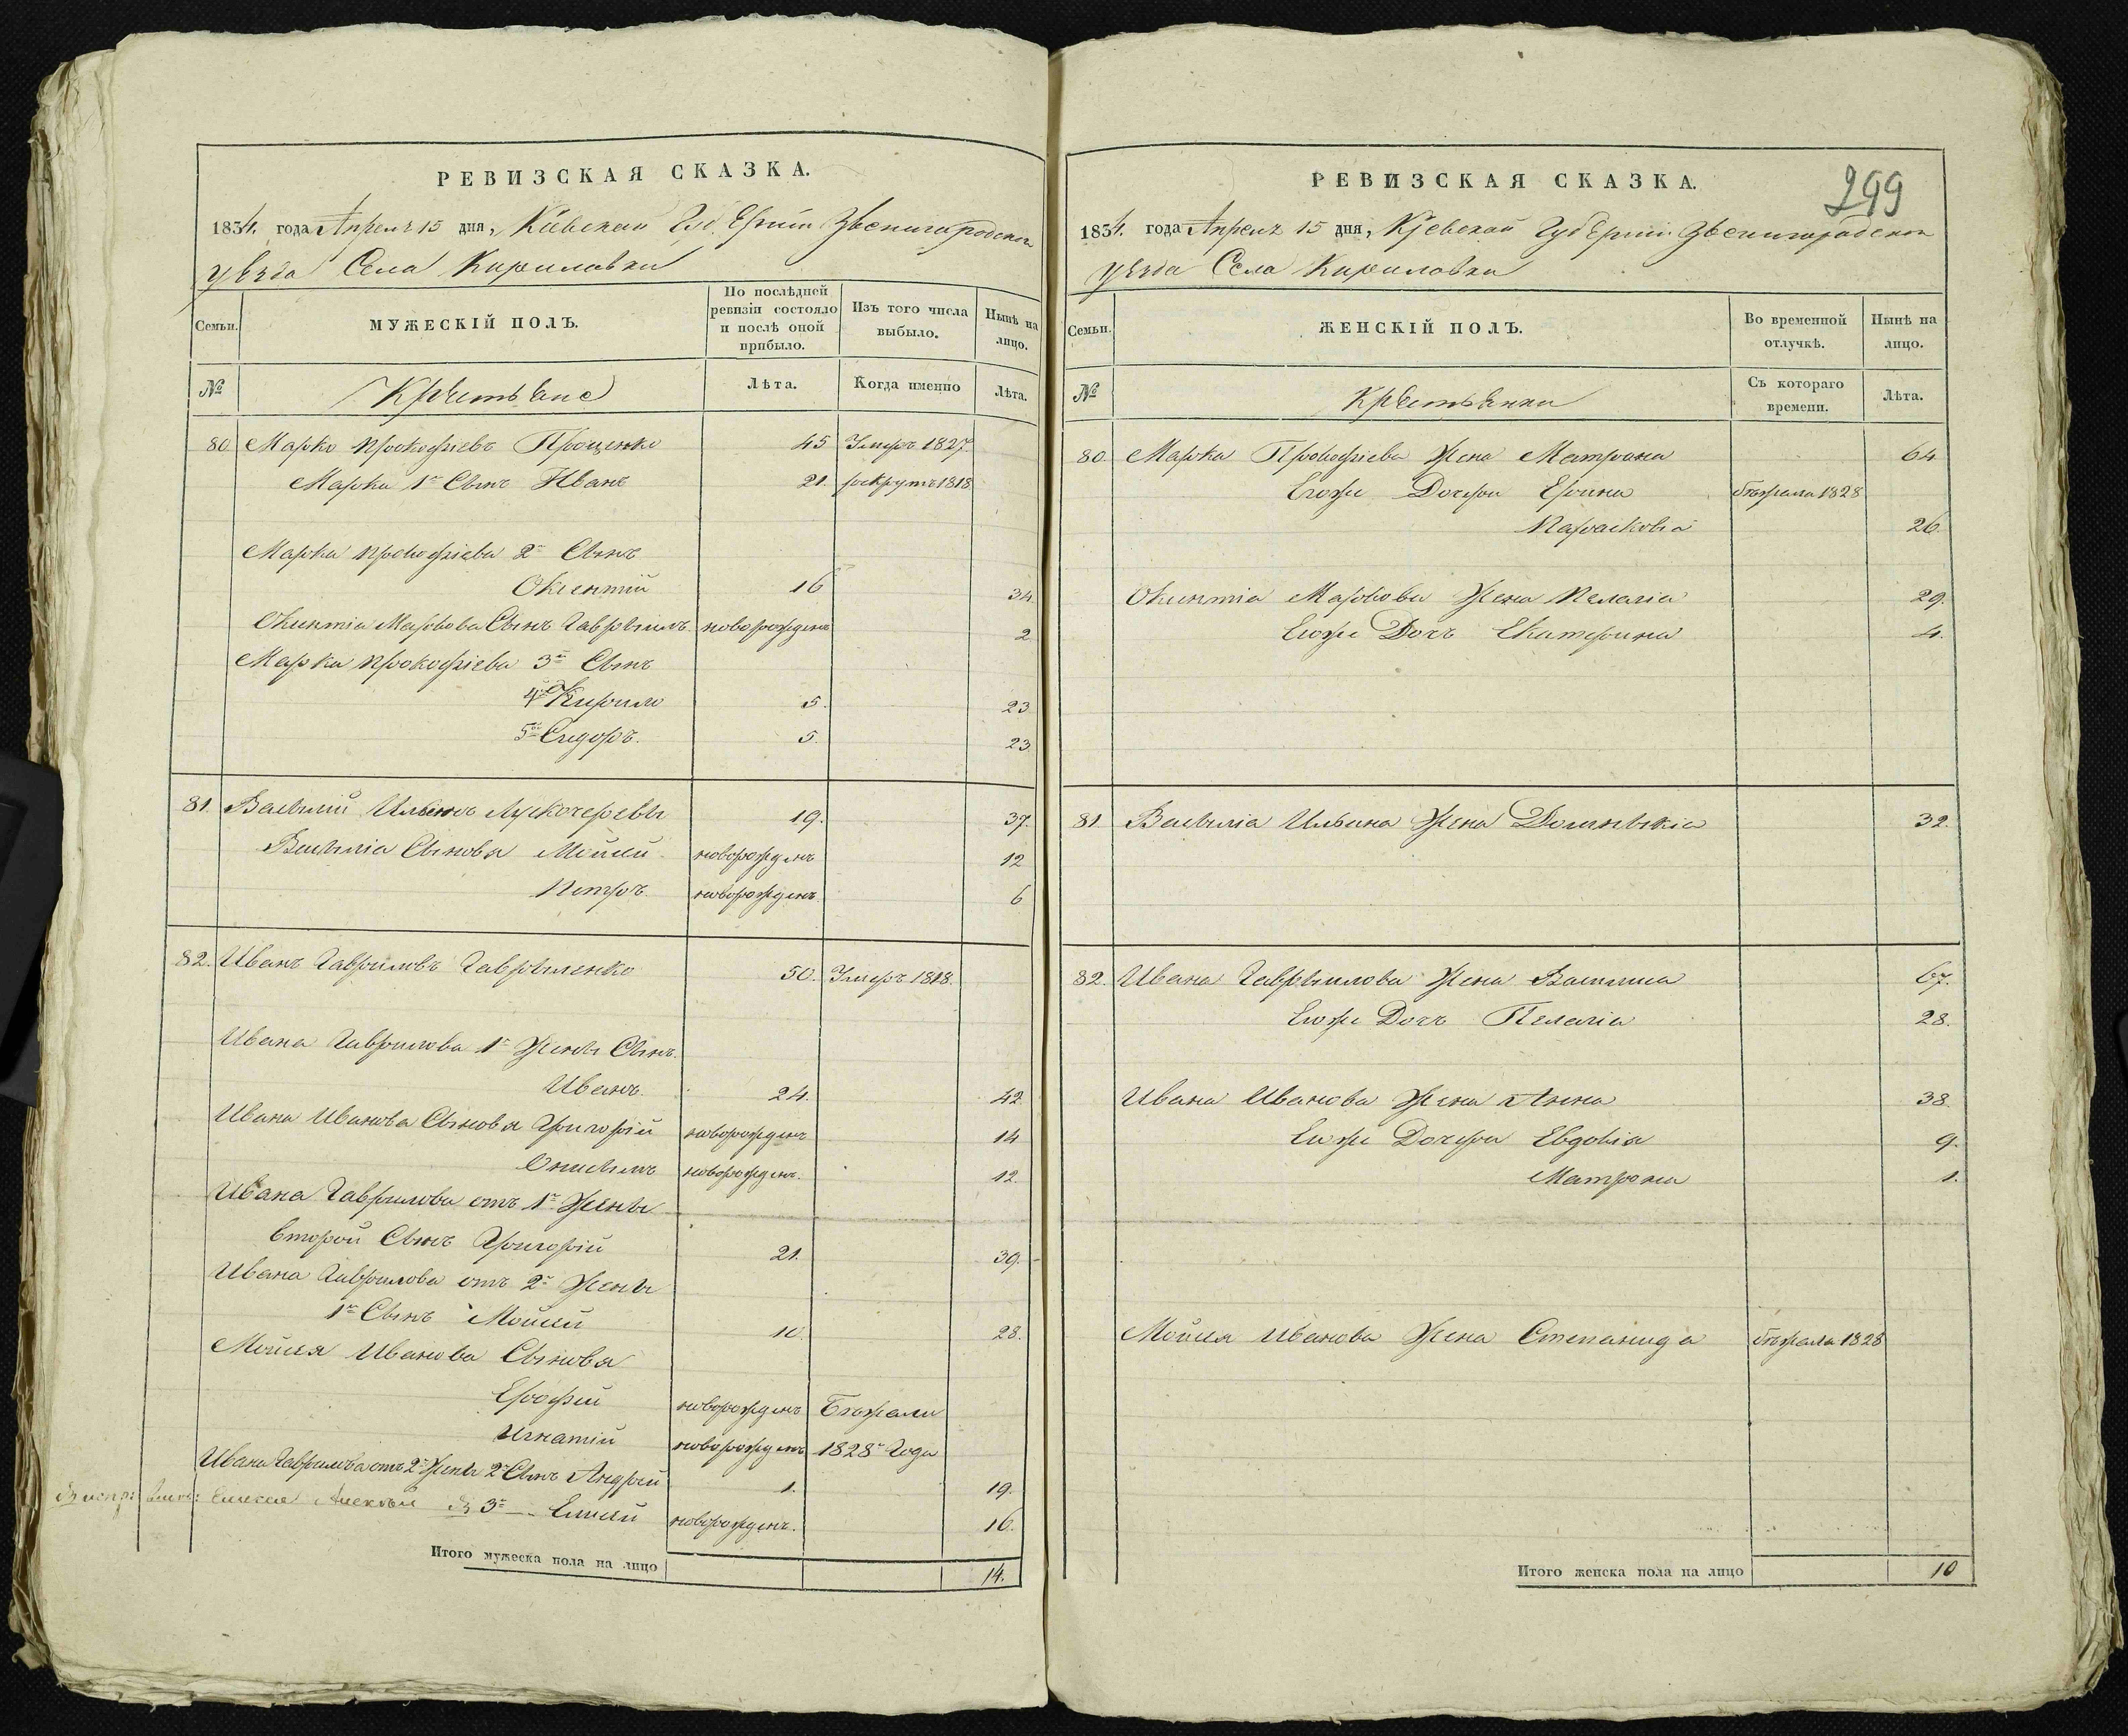 РЕВИЗСКАЯ СКАЗКА.
1834. года Апреля 15 дня, Кіевской Губерніи Звенигородского
уезда Села Кириловки
Семьи.
МУЖЕСКІЙ ПОЛЪ.
По послѣдней ревизіи состояло и послѣ оной прибыло.
Изъ того числа выбыло.
Нынѣ на лицо.
№ Крестьяне Лѣта. Когда именно Лѣта.
80 Марко Прокофіевъ Проценко 45 Умеръ 1827.
Марка 1й Сынъ Иванъ 21. рекрутъ 1818
Марка Прокофіева 2й Сынъ
Окентій 16 34.
Окинтіа Маркова Сынъ Гаврыилъ новорожденъ 2
Марка Прокофіева 3й Сынъ
4й Кирило 5. 23
5й Сидоръ. 5. 23
81. Васылій Ильинъ 19. 37.
Васыліа Сыновя Мойсей новорожденъ 12
Петръ новорожденъ 6
82. Иванъ Гавриловъ Гаврыленко 50. Умеръ 1818.
Ивана Гаврилова 1й Жены Сынъ
Иванъ 24. 42
Ивана Иванова Сыновя Григорій новорожденъ 14
новорожденъ. 12.
Ивана Гаврилова отъ 1й Жены
второй Сынъ Григорій 21. 39.
Ивана Гаврилова отъ 2й Жены
1й Сынъ Мойсей 10. 28.
Мойсея Иванова Сыновя
Ерофей новорожденъ Бежали
Игнатій новорожденъ 1828го Года
Ивана Гаврилова отъ 2й Жены 2й Сынъ Андрей 1. 19.
Елисея Алексѣй 3й Елисей новорожденъ. 16.
Итого мужеска пола на лицо 14.
РЕВИЗСКАЯ СКАЗКА.
299
1834. года Апреля 15 дня, Кіевской Губерніи Звенигородского
уезда Села Кириловки
Семьи.
ЖЕНСКІЙ ПОЛЪ.
Во временной отлучкѣ.
Нынѣ на лицо.
№ Крестьянки Съ котораго времени. Лѣта.
80. Марка Прокофіева Жена Матрона 64
Егоже Дочери Ерина бѣжала 1828
Парасковіа 26.
Окинтіа Маркова Жена Пелагіа 29.
Егоже Дочъ Екатерина 4.
81. Васыліа Ильина Жена Доминыкіа 32.
82. Ивана Гаврыилова Жена Василиса 67.
Егоже Дочъ Пелагіа 28.
Ивана Иванова Жена Анна 38
Егоже Дочери Евдокіа 9.
Матрона 1.
Мойсея Иванова Жена Степанида бѣжала 1828
Итого женска пола на лицо 10